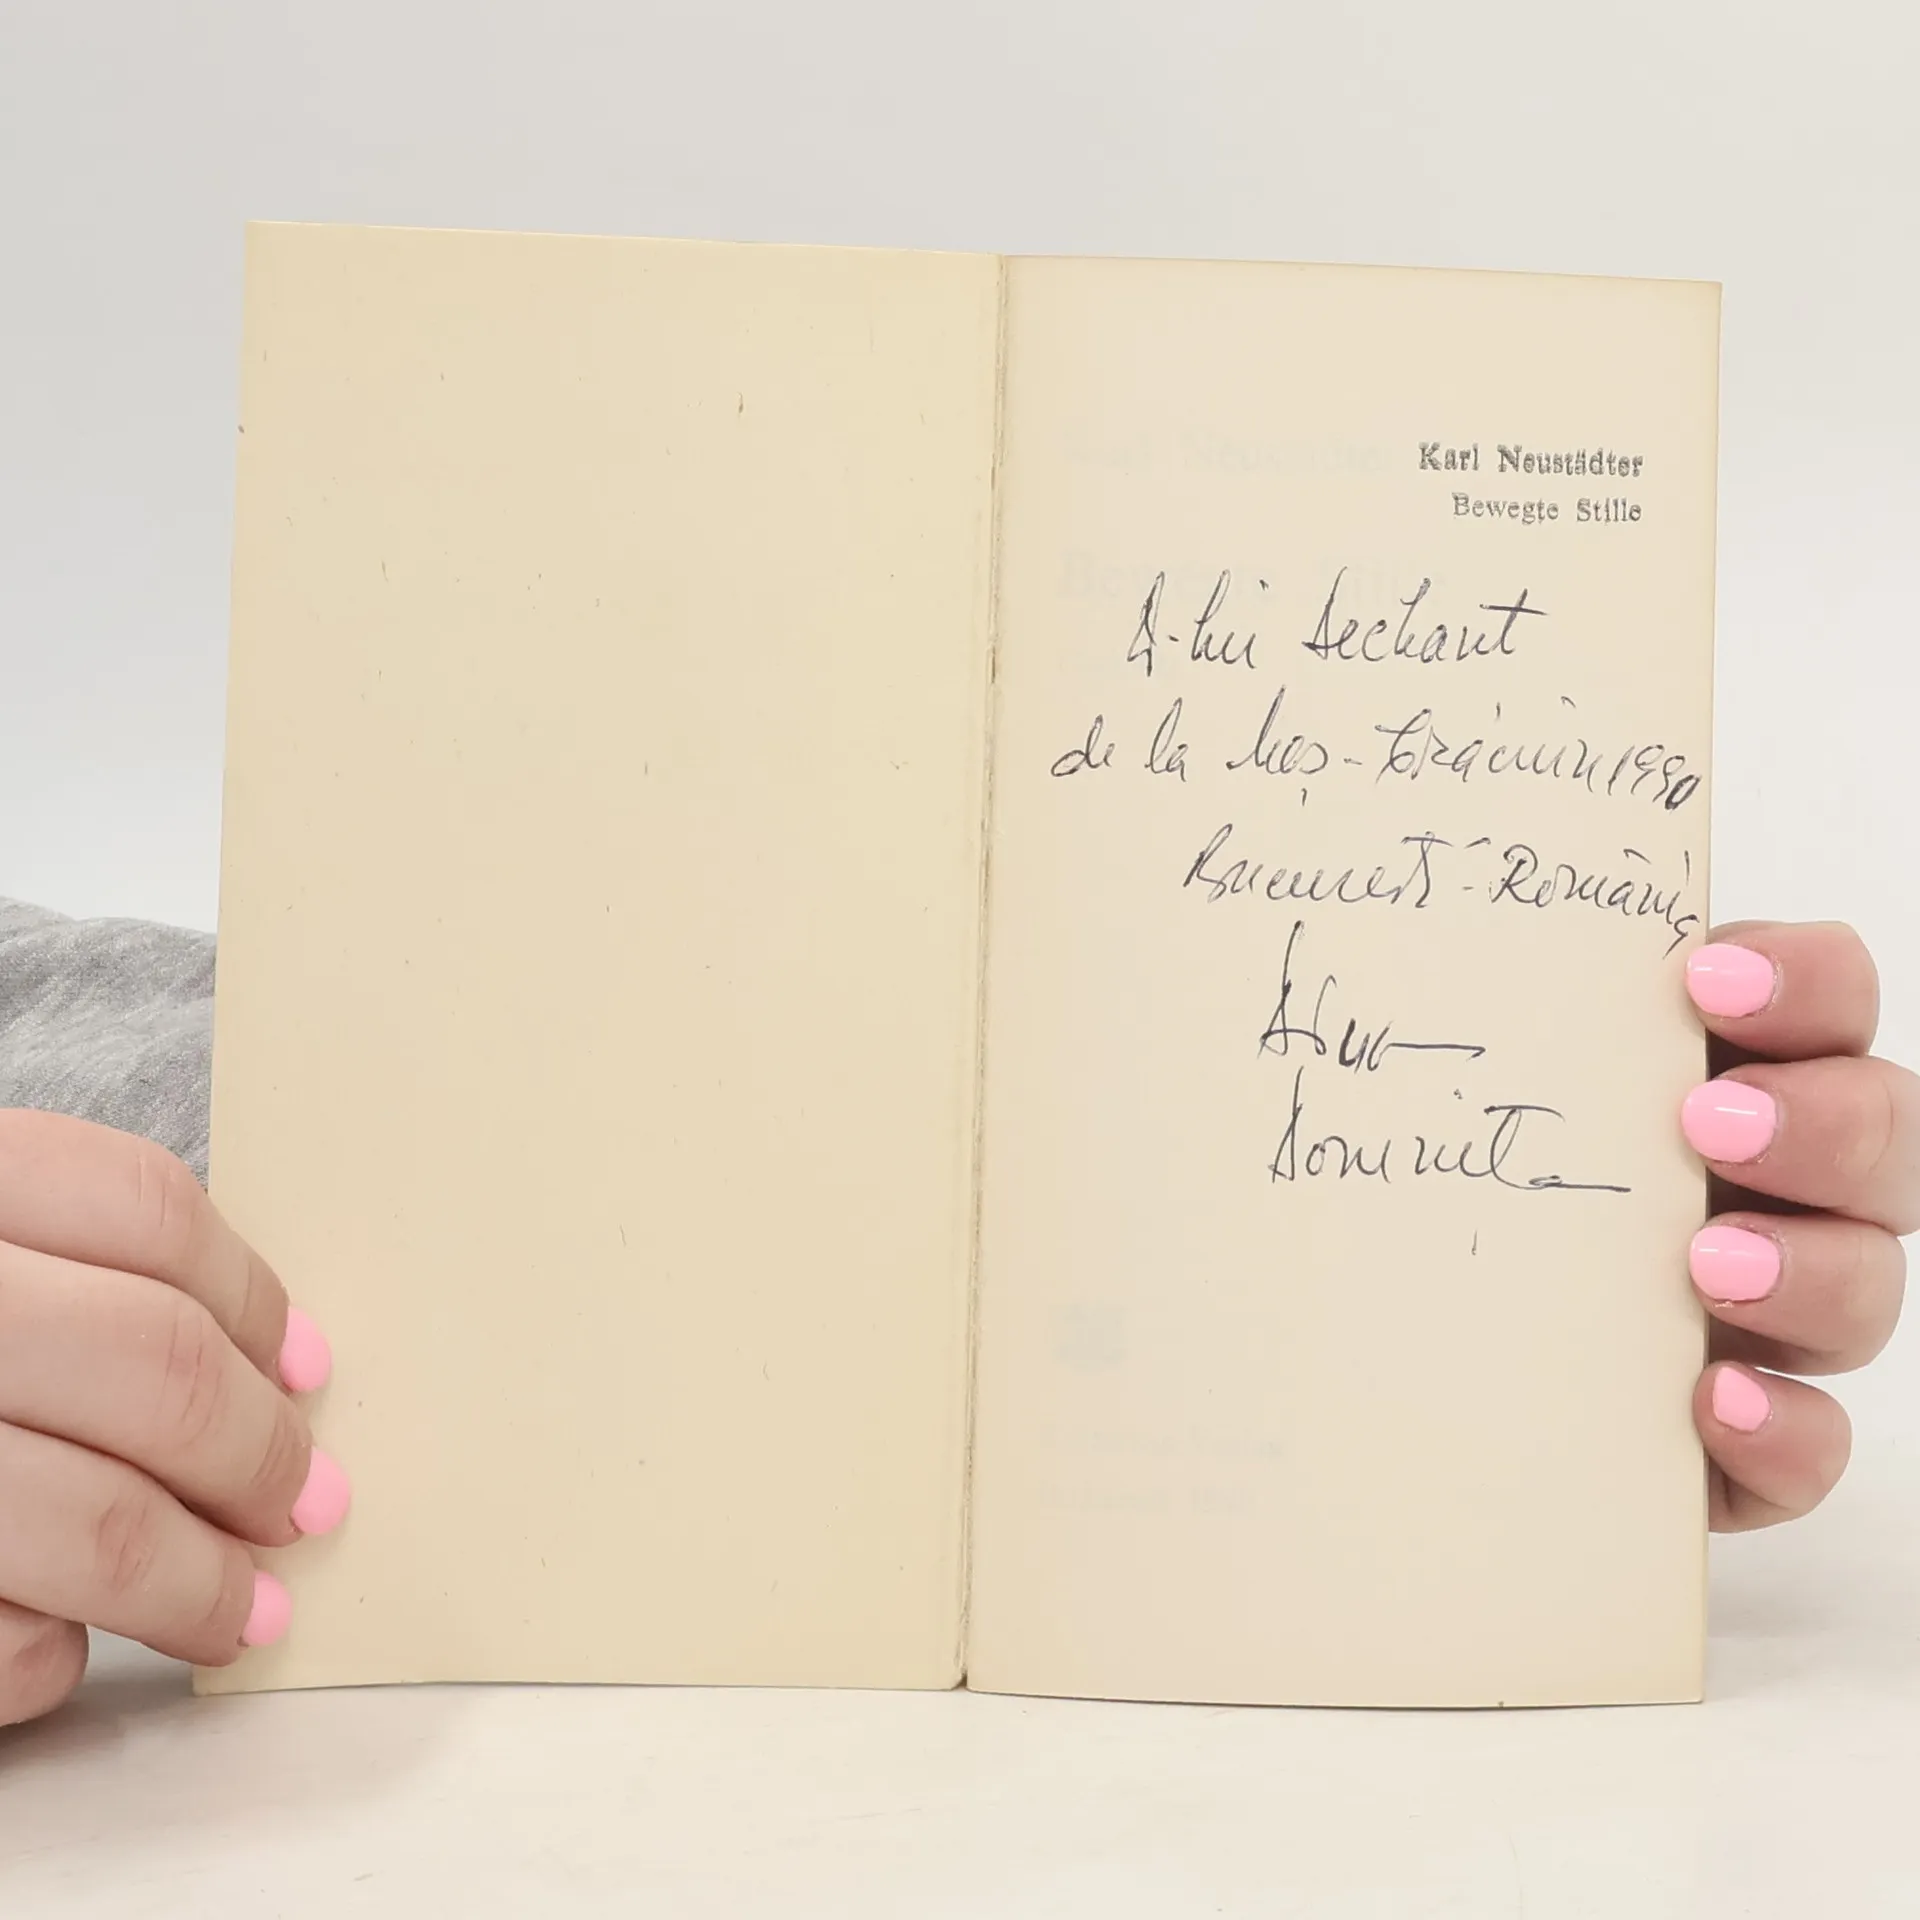 Karl Neustädter
Bewegte Stille
D-lui Dechant
de la Moș-Crăciun 1990
București-România
Dominița